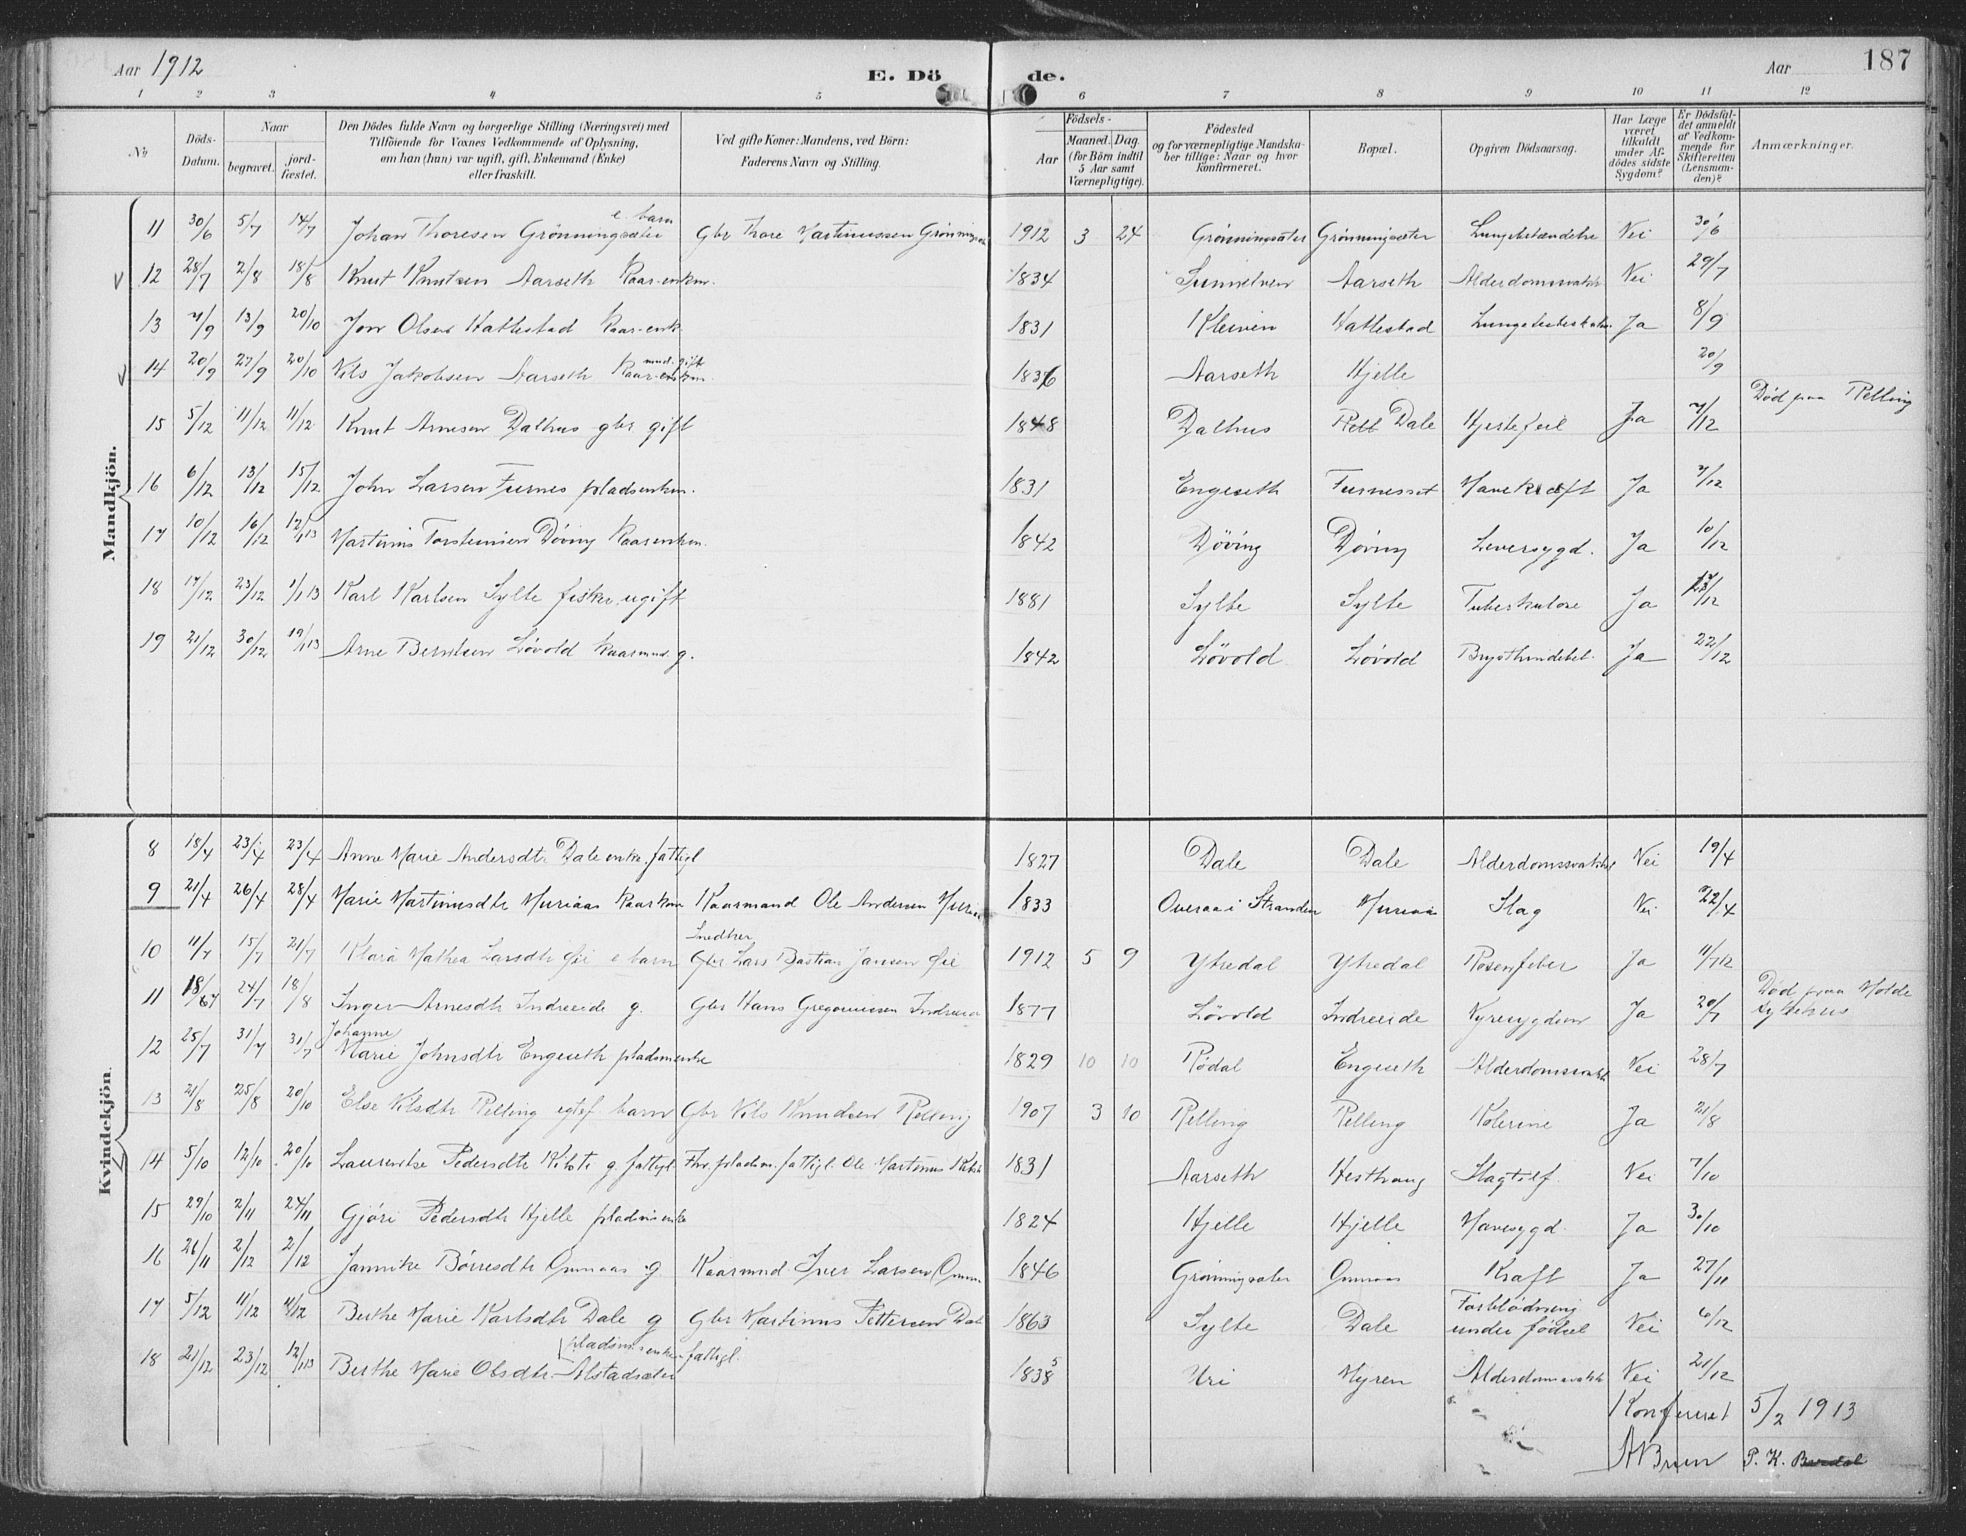 Aar 1912 E. Dö de. Aar 187
1 2 3 4 5 6 7 8 9 10 11 12
No Döds-Datum. Naar begravet. jord-fæstet. Den Dödes fulde Navn og borgerlige Stilling (Næringsvei) med Tilföiende for Voxnes Vedkommende af Oplysning, om han (hun) var ugift, gift, Enkemand (Enke) eller fraskilt. Ved gifte Koner: Mandens, ved Börn: Faderens Navn og Stilling. Födsels- Aar Maaned. Dag. (for Börn indtil 5 Aar samt Værnepligtige). Födested og for værnepligtige Mandskaber tillige: Naar og hvor konfirmeret. Bopæl. Opgiven Dödsaarsag. Har Læge været tilkaldt under Afdödes sidste Sygdom? Er Dödsfaldet anmeldt af Vedkommende for Skifteretten (Lensmanden)? Anmærkninger.
Mandkjön.
11 30/6 5/7 14/7 Johan Thoresen Grönningsæter e. barn Gbr Thore Martinussen 1912 3 24 Grönningsæter Grönningsæter Lungebetændelse Nei 30/6
12 28/7 2/8 18/8 Knut Knutsen Aarseth Kaar-enkm. 1834 Sunnelven Aarseth Alderdomssvakh Nei 29/7
13 7/9 13/9 20/10 Jon Olsen Hattestad Kaar-enk. 1831 Kleiven Hattestad Ja 8/9
14 20/9 27/9 20/10 Nils Jakobsen Aarseth Kaar-enkm. mnd. gift 1836 Aarseth Hjelle 20/9
15 5/12 11/12 11/12 Knut Arnesen Dalhus gbr gift 1848 Dalhus Rell Dale Hjertefeil Ja 7/12 Död paa Relling
16 6/12 13/12 15/12 John Larsen Furnes pladsenkm. 1831 Engeseth Furnesset Mavekræft Ja 7/12
17 10/12 16/12 12/1 13 Martinus Torsteinsen Döving Kaarenkm. 1842 Döving Döving Leversygd. Ja 10/12
18 17/12 23/12 1/1 13 Karl Karlsen Sylte fisker, ugift 1881 Sylte Sylte Tuberkulose Ja
19 21/12 30/12 19/1 13 Arne Berntsen Lövold Kaarmnd. g. 1842 Lövold Lövold Brysthindebet. Ja 22/12
Kvindekjön.
8 18/4 23/4 23/4 Anne Marie Andersdtr Dale enke. fattigl 1827 Dale Dale Alderdomssvakhe Nei 19/4
9 21/4 26/4 28/4 Marie Martinusdtr Muriaas Kaarkon Kaarmand Ole Andersen 1833 Overaa i Stranden Slag Nei 22/4
10 11/7 15/7 21/7 Klara Mathea Larsdtr Öie e barn Snedker Gbr Lars Bastian Jansen Öie 1912 5 9 Ytredal Ytredal Rosenfeber Ja 11/7 12
11 24/7 18/8 Inger Arnesdtr Indreeide g. Gbr Hans Gregoriussen 1877 Lövold Indreeide Nyresygdom Ja 20/7 Död paa Molde sykehus
12 25/7 31/7 31/7 Johanne Marie Johnsdtr Engeseth pladsmenke 1829 10 10 Rödal Engeseth Alderdomssvakh Nei 28/7
13 21/8 25/8 20/10 Else Nilsdtr Relling egtef barn Gbr Nils Knudsen Relling 1907 3 10 Relling Relling Kolerine Ja 21/8
14 5/10 12/10 20/10 Laurentse Pedersdtr Kilsti g. fattigl Fhv. pladsm. fattigl. Ole Martinus 1831 Aarseth Hesthaug Slagtilf. Nei 7/10
15 29/10 2/11 24/11 Gjöri Pedersdtr Hjelle pladsmenke 1824 Hjelle Hjelle Mavesygd. Ja 30/10
16 26/11 2/12 2/12 Jannike Börresdtr Omnaas g. Kaarmnd Iver Larsen 1846 Grönningsæter Omnaas Kræft Ja 27/11
17 5/12 11/12 11/12 Berthe Marie Karlsdtr Dale g Gbr Martinus Pettersen Dale 1863 Sylte Dale Forblödning under födsel Nei 6/12
18 21/12 23/12 12/1 13 Berthe Marie Olsdtr Alstadsæter (pladsm.enke fattigl. 1838 5 Uri Myren Alderdomssvakh Nei 21/12
Konfereret 5/2 1913
ABruun P. K.